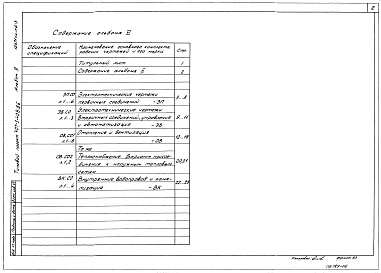 2
Содержание альбома II
Обозначение спецификаций
Наименование основного комплекта рабочих чертежей и его марки
Стр.
Титульный лист 1
Содержание альбома II 2
ЭП.СО л.1...6
Электротехнические чертежи первичных соединений -ЭП
3...8
ЭВ.СО л.1...3
Электротехнические чертежи вторичных соединений, управления и автоматизация -ЭВ
9...11
ОВ.СО1
Отопление и вентиляция -ОВ
То же
ОВ.СО2 л.1,2
Теплоснабжение. Вариант присоединения к наружным тепловым сетям
20,21
ВК.СО л.1...4
Внутренние водопровод и канализация -ВК
Альбом II
Типовой проект
Копировал
Формат А3